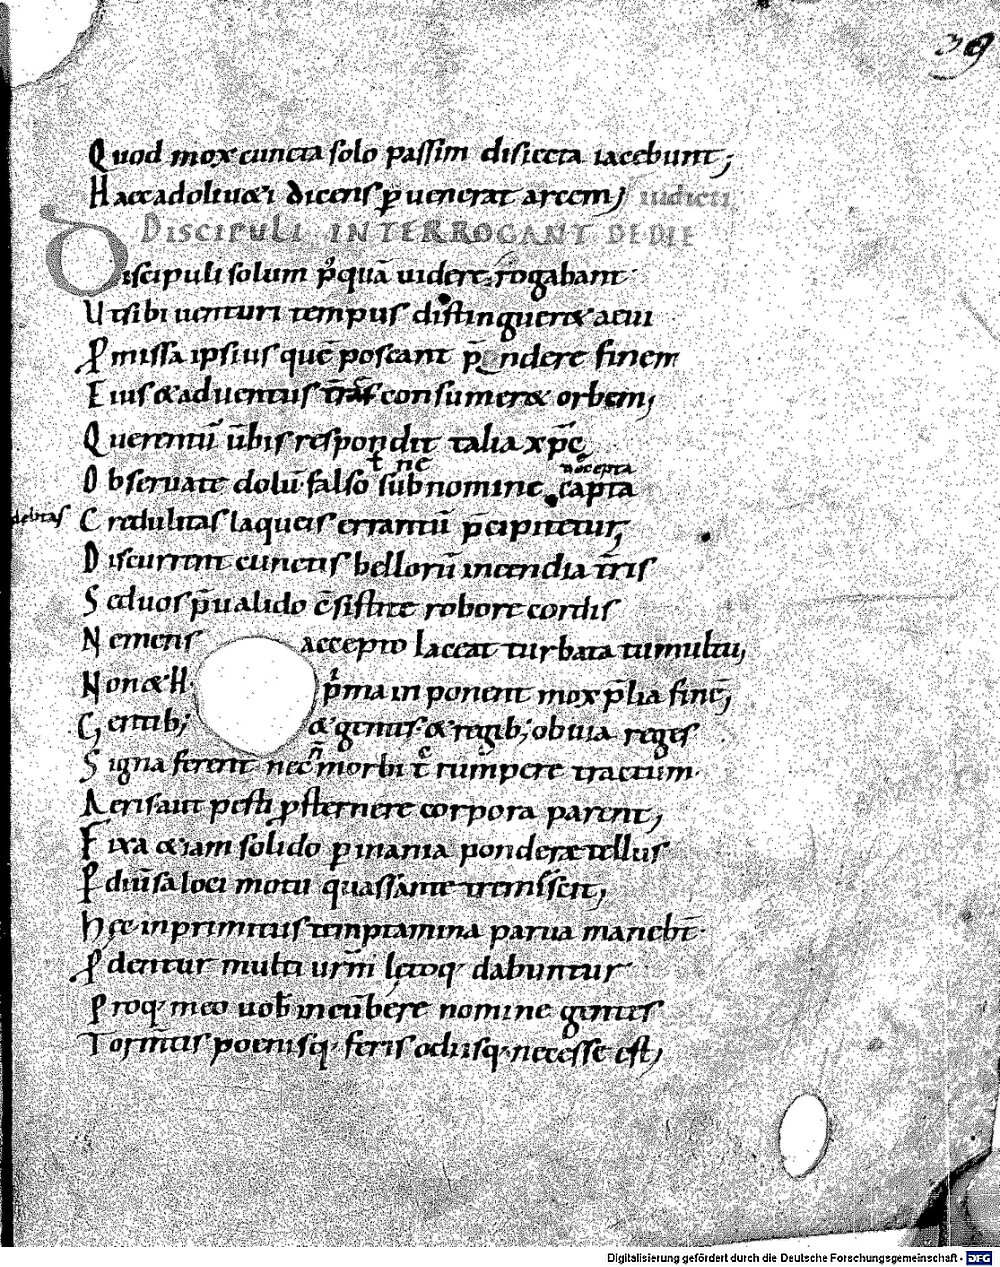 39
Quod mox cuncta solo passim disiecta iacebunt;
Haec ad oliueti dicens puenerat arcem; iudicii
DISCIPULI INTERROGANT DE DIE
Discipuli solum pꝰquā uidere rogabant
Ut sibi uenturi tempus distingueret aeui
Pmissa ipsius quę̄ poscant p̄ndere finem
Eius & aduentus consumeret orbem;
Querentū ūbis respondit talia xp̄c
t nē nō cepta
Obseruate dolū falso sub nomine capta
Credulitas laqueis errantū p̄cipitetur;
Discurrent cunctis bellorū incendia tr̄ris
Sed uos p̄ualido c̄sistite robore cordis
Ne mens accepto laceat turbata tumultu;
Non & H pͥma inponent mox p̄lia finē;
Gentib; & genus & regib; obuia reges
Signa ferent nec morbi rumpere tractum
Aeris aut pesti psternere corpora parent;
Fixa & iam solido p inania pondere tellus
P diūsa loci motu quassante tremiscit;
Hęc inprimitus temptamina parua manebt̄
Pdentur multi urm̄ lętoq; dabuntur
Proq; meo uob̄ incūbere nomine gentes
Torm̄tis poenisq; feris odiisq; necesse est;
Digitalisierung gefördert durch die Deutsche Forschungsgemeinschaft - DFG